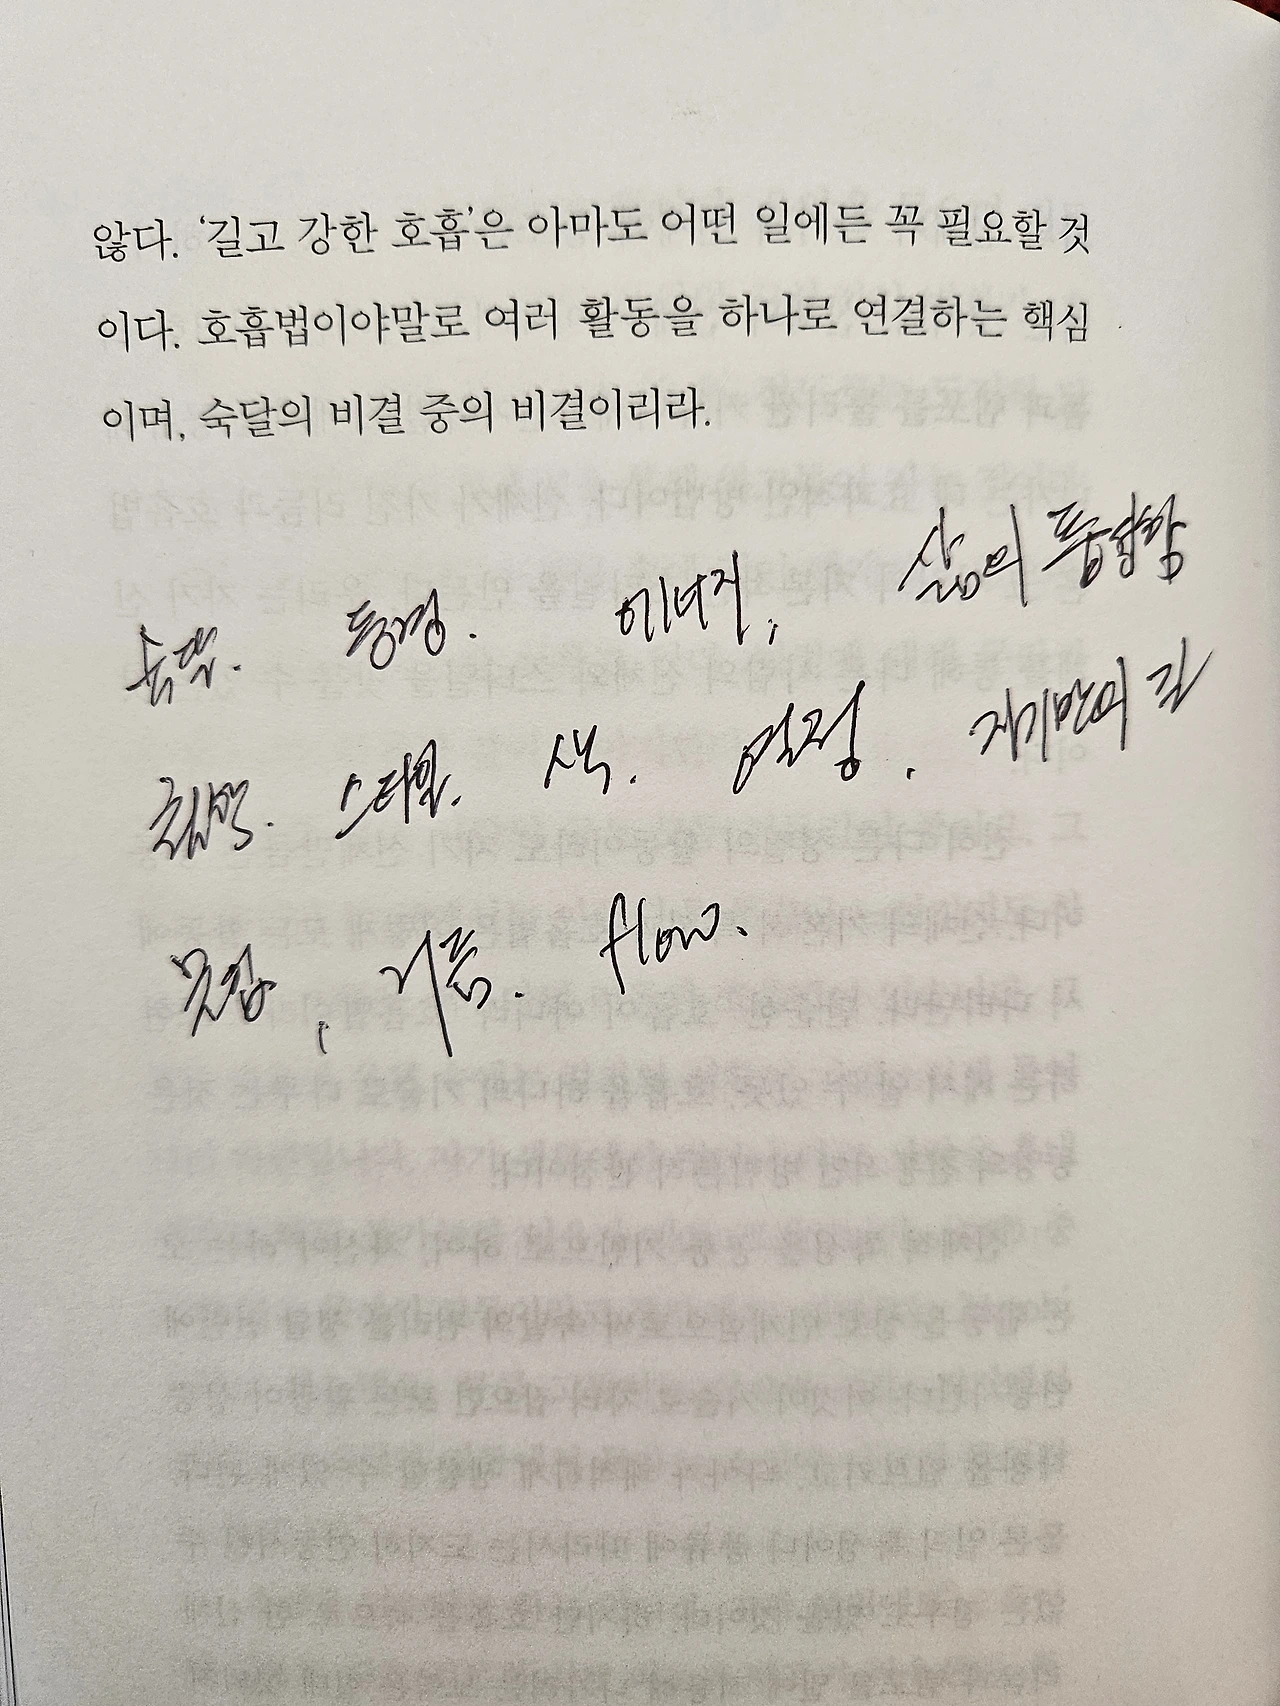 않다. ‘길고 강한 호흡’은 아마도 어떤 일에든 꼭 필요할 것
이다. 호흡법이야말로 여러 활동을 하나로 연결하는 핵심
이며, 숙달의 비결 중의 비결이리라.
숙달. 동경. 에너지, 삶의 통합함
스타일. 색. 열정. 자기만의 길
몰입, 리듬. flow.